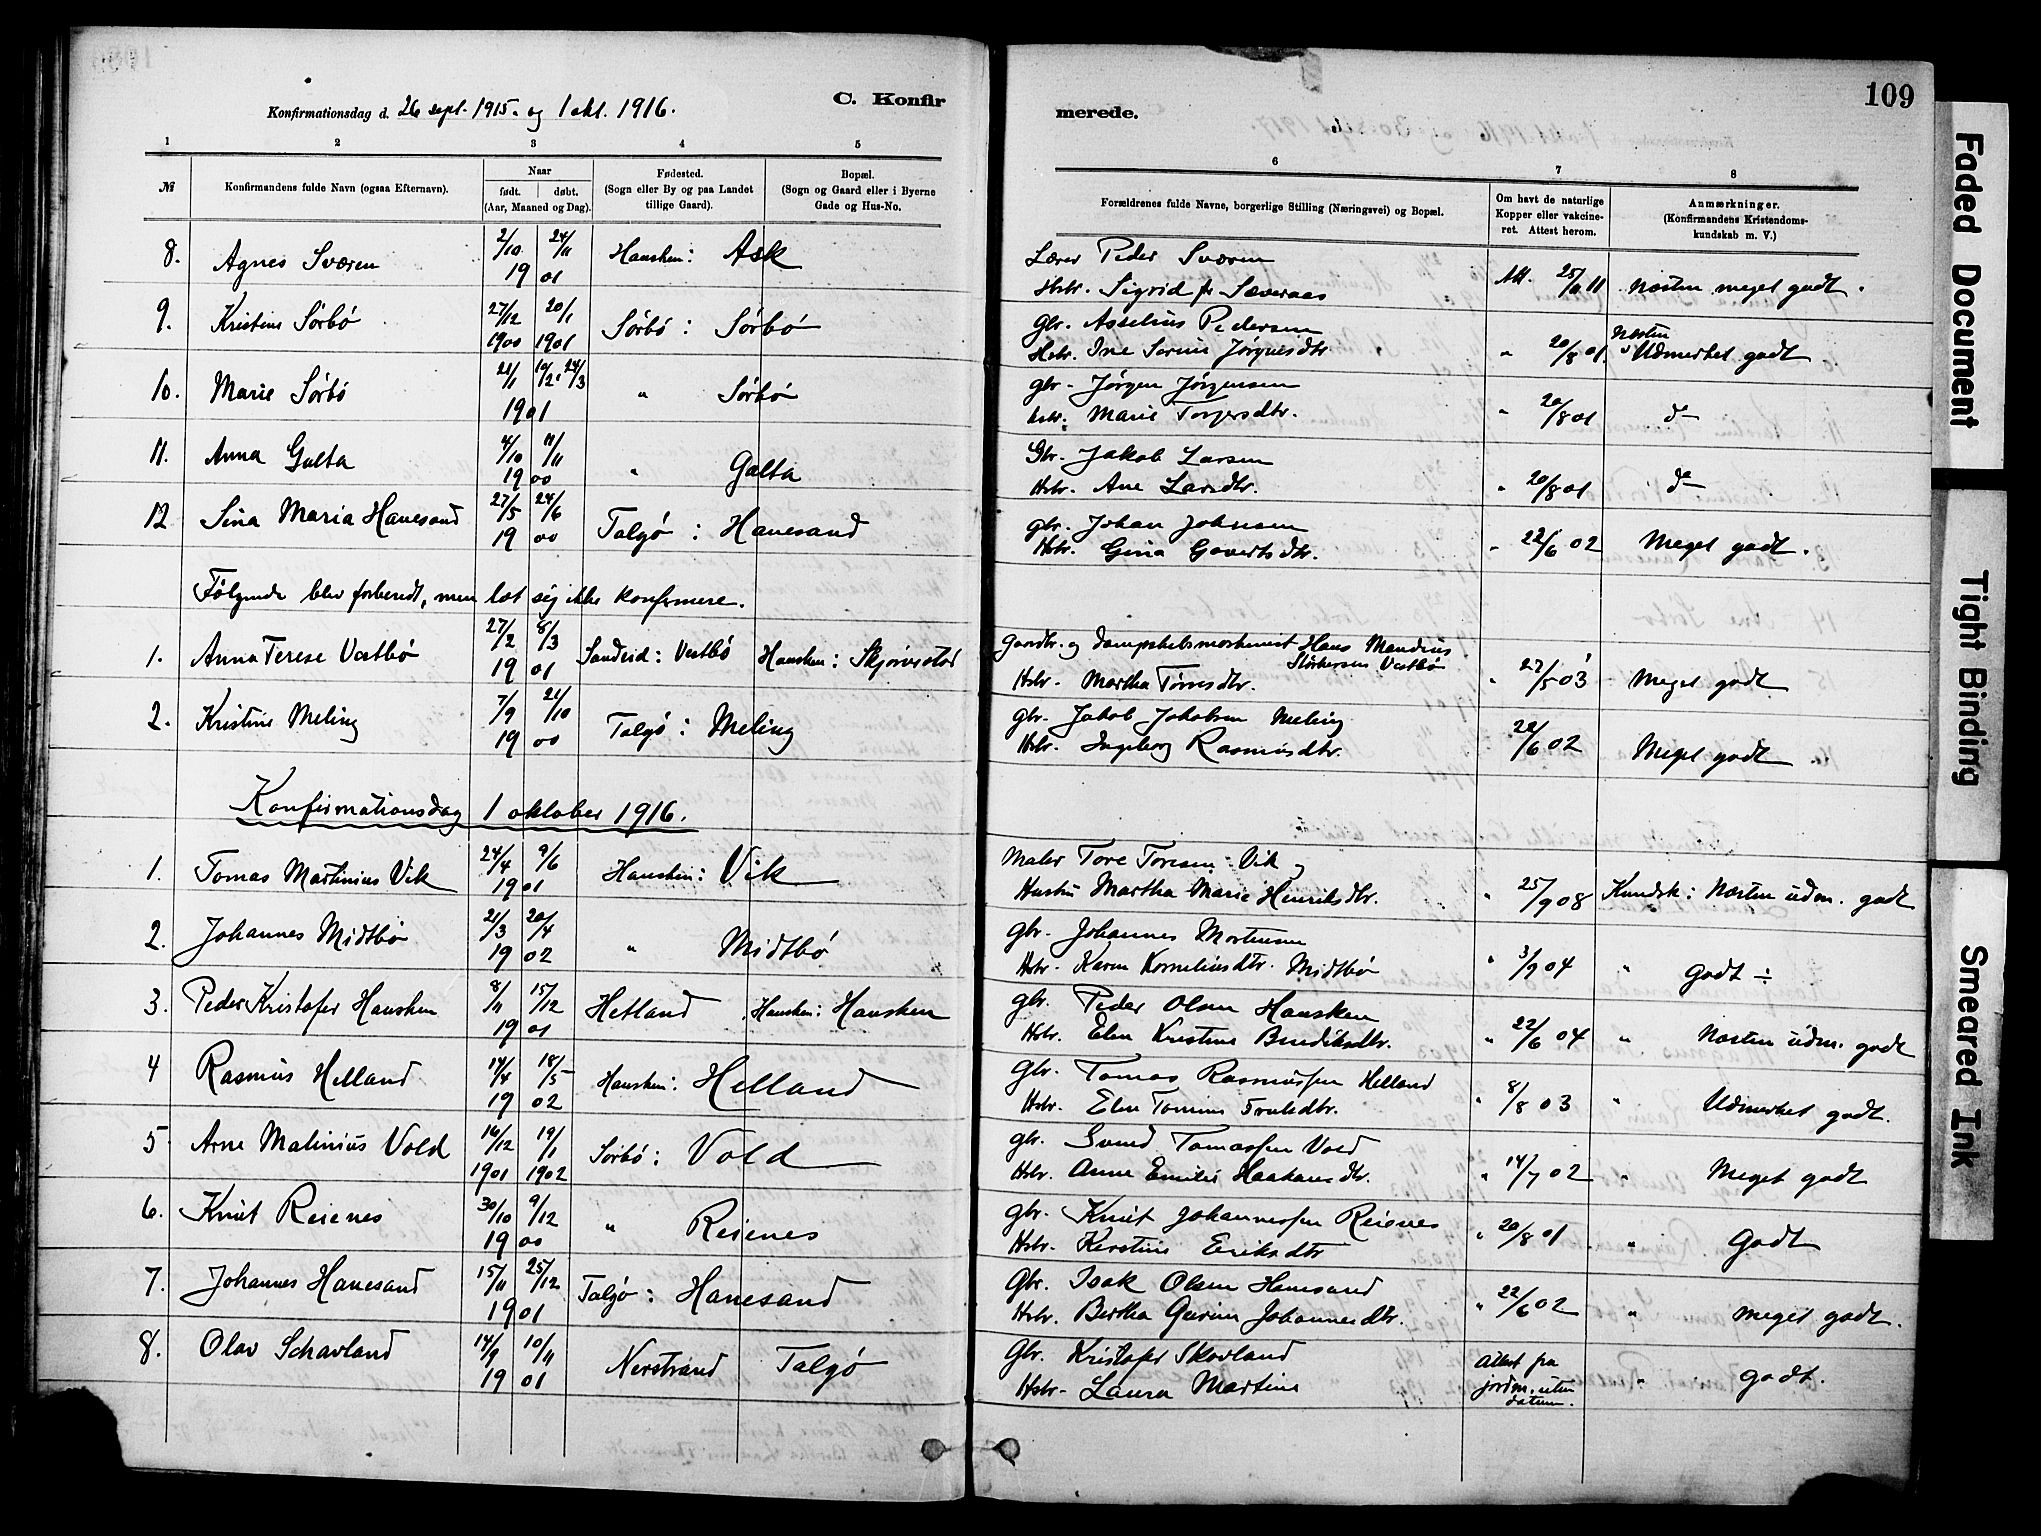 Konfirmationsdag d. 26 sept. 1915. og 1 okt. 1916.
C. Konfir
merede.
109
1 2 3 4 5 6 7 8
№
Konfirmandens fulde Navn (ogsaa Efternavn).
Naar
født. døbt.
(Aar, Maaned og Dag).
Fødested.
(Sogn eller By og paa Landet
tillige Gaard).
Bopæl.
(Sogn og Gaard eller i Byerne
Gade og Hus-No.
Forældrenes fulde Navne, borgerlige Stilling (Næringsvei) og Bopæl.
Om havt de naturlige
Kopper eller vakcine-
ret. Attest herom.
Anmærkninger.
(Konfirmandens Kristendoms-
kundskab m. V.)
8. Agnes Sværen 2/10 24/11 1901 Hausken: Ask Lærer Peder Sværen
Hstr. Sigrid f. Sæveraas Att. 25/11 11 Næsten meget godt.
9. Kristine Sørbø 27/12 1900 20/1 1901 Sørbø: Sørbø Gbr. Asselius Pedersen
Hstr. Ine Serine Jørginsdtr " 20/8 01. Næsten Udmerket godt
10. Marie Sørbø 21/1 10/2. 24/3 1901 " Sørbø gbr. Jørgen Jørgensen
Hstr. Marie Torgersdtr. " 20/8 01 do
11. Anna Galta 4/10 11/11 1900 " Galta Gbr. Jakob Larsen
Hstr. Ane Larsdtr. " 20/8 01 do
12 Sina Maria Hanesand 27/5 24/6 1900 Talgø: Hanesand gbr. Johan Johnsen
Hstr. Gina Govertsdtr. " 22/6 02 Meget godt.
Følgende blev forberedt, men lot sig ikke konfirmere.
1. Anna Terese Vestbø 27/2 8/3 1901 Sandeid: Vestbø Hausken: Skjørvestad Gaardbr. og dampskibsmaskinist Hans Mandius
Størkersen Vestbø
Hstr. Martha Tørresdtr. " 27/5 03 Meget godt
2. Kristine Meling 7/9 21/10 1900 Talgø: Meling gbr. Jakob Jakobsen Meling
Hstr. Ingeborg Rasmusdtr. 22/6 02 Meget godt
Konfirmationsdag 1 oktober 1916.
1. Tomas Martinius Vik 24/4 9/6 1901 Hausken: Vik Maler Tore Toresen Vik
Hustru Martha Marie Henriksdtr. " 25/9 08 Kundsk: Næsten udm. godt
2. Johannes Midtbø 21/3 20/4 1902 " Midtbø gbr. Johannes Mortensen
Hstr. Karen Korneliusdtr. Midtbø " 3/9 04 " godt ÷
3. Peder Kristofer Hausken 8/11 15/12 1901 Hetland Hausken: Hausken gbr. Peder Olsen Hausken
Hstr. Elen Kristine Bendiksdtr. " 22/6 04 " Næsten udm. godt
4 Rasmus Helland 14/4 18/5 1902 Hausken: Helland Gbr. Tomas Rasmussen Helland
Hstr. Elen Tomine " 8/8 03 " Udmerket godt.
5 Arne Malinius Vold 16/12 1901 19/1 1902 Sørbø: Vold gbr. Svend Tomassen Vold
Hstr. Anne Emilie Haakonsdtr. " 14/7 02 " Meget godt
6. Knut Reienes 30/10 9/12 1900 " Reienes gbr. Knut Johannessen Reienes
Hstr. Kerstine Eriksdtr " 20/8 01 " Godt
7. Johannes Hanesand 15/11 25/12 1901 Talgø: Hanesand Gbr. Isak Olsen Hanesand
Hstr. Bertha Gurine Johannesdtr. " 22/6 02 " Meget godt.
8. Olav Schavland 14/9 10/11 1901 Nerstrand Talgø Gbr. Kristofer Skavland
Hstr. Laura Martine Attest fra
jordm. uten
datum. " godt.
Faded Document
Tight Binding
Smeared Ink